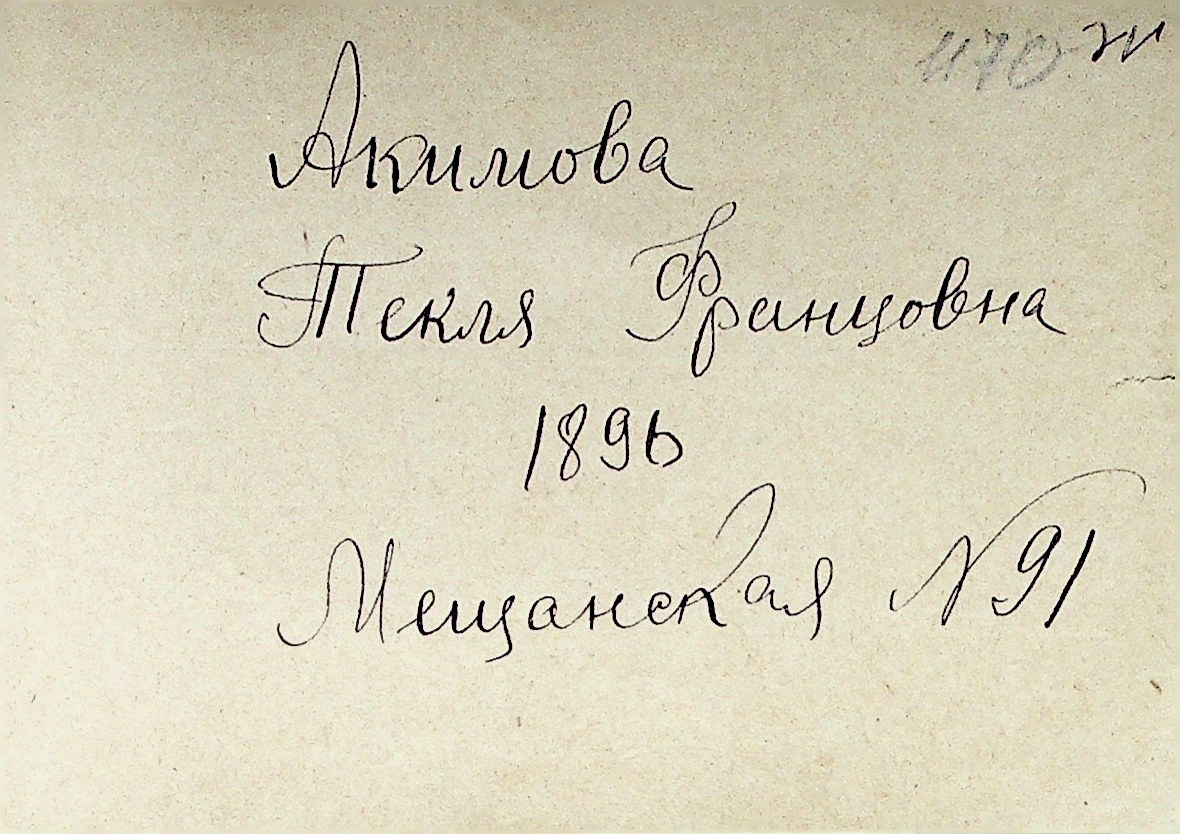 1170 зи
Акимова
Текля Францовна
1896
Мещанская N 91